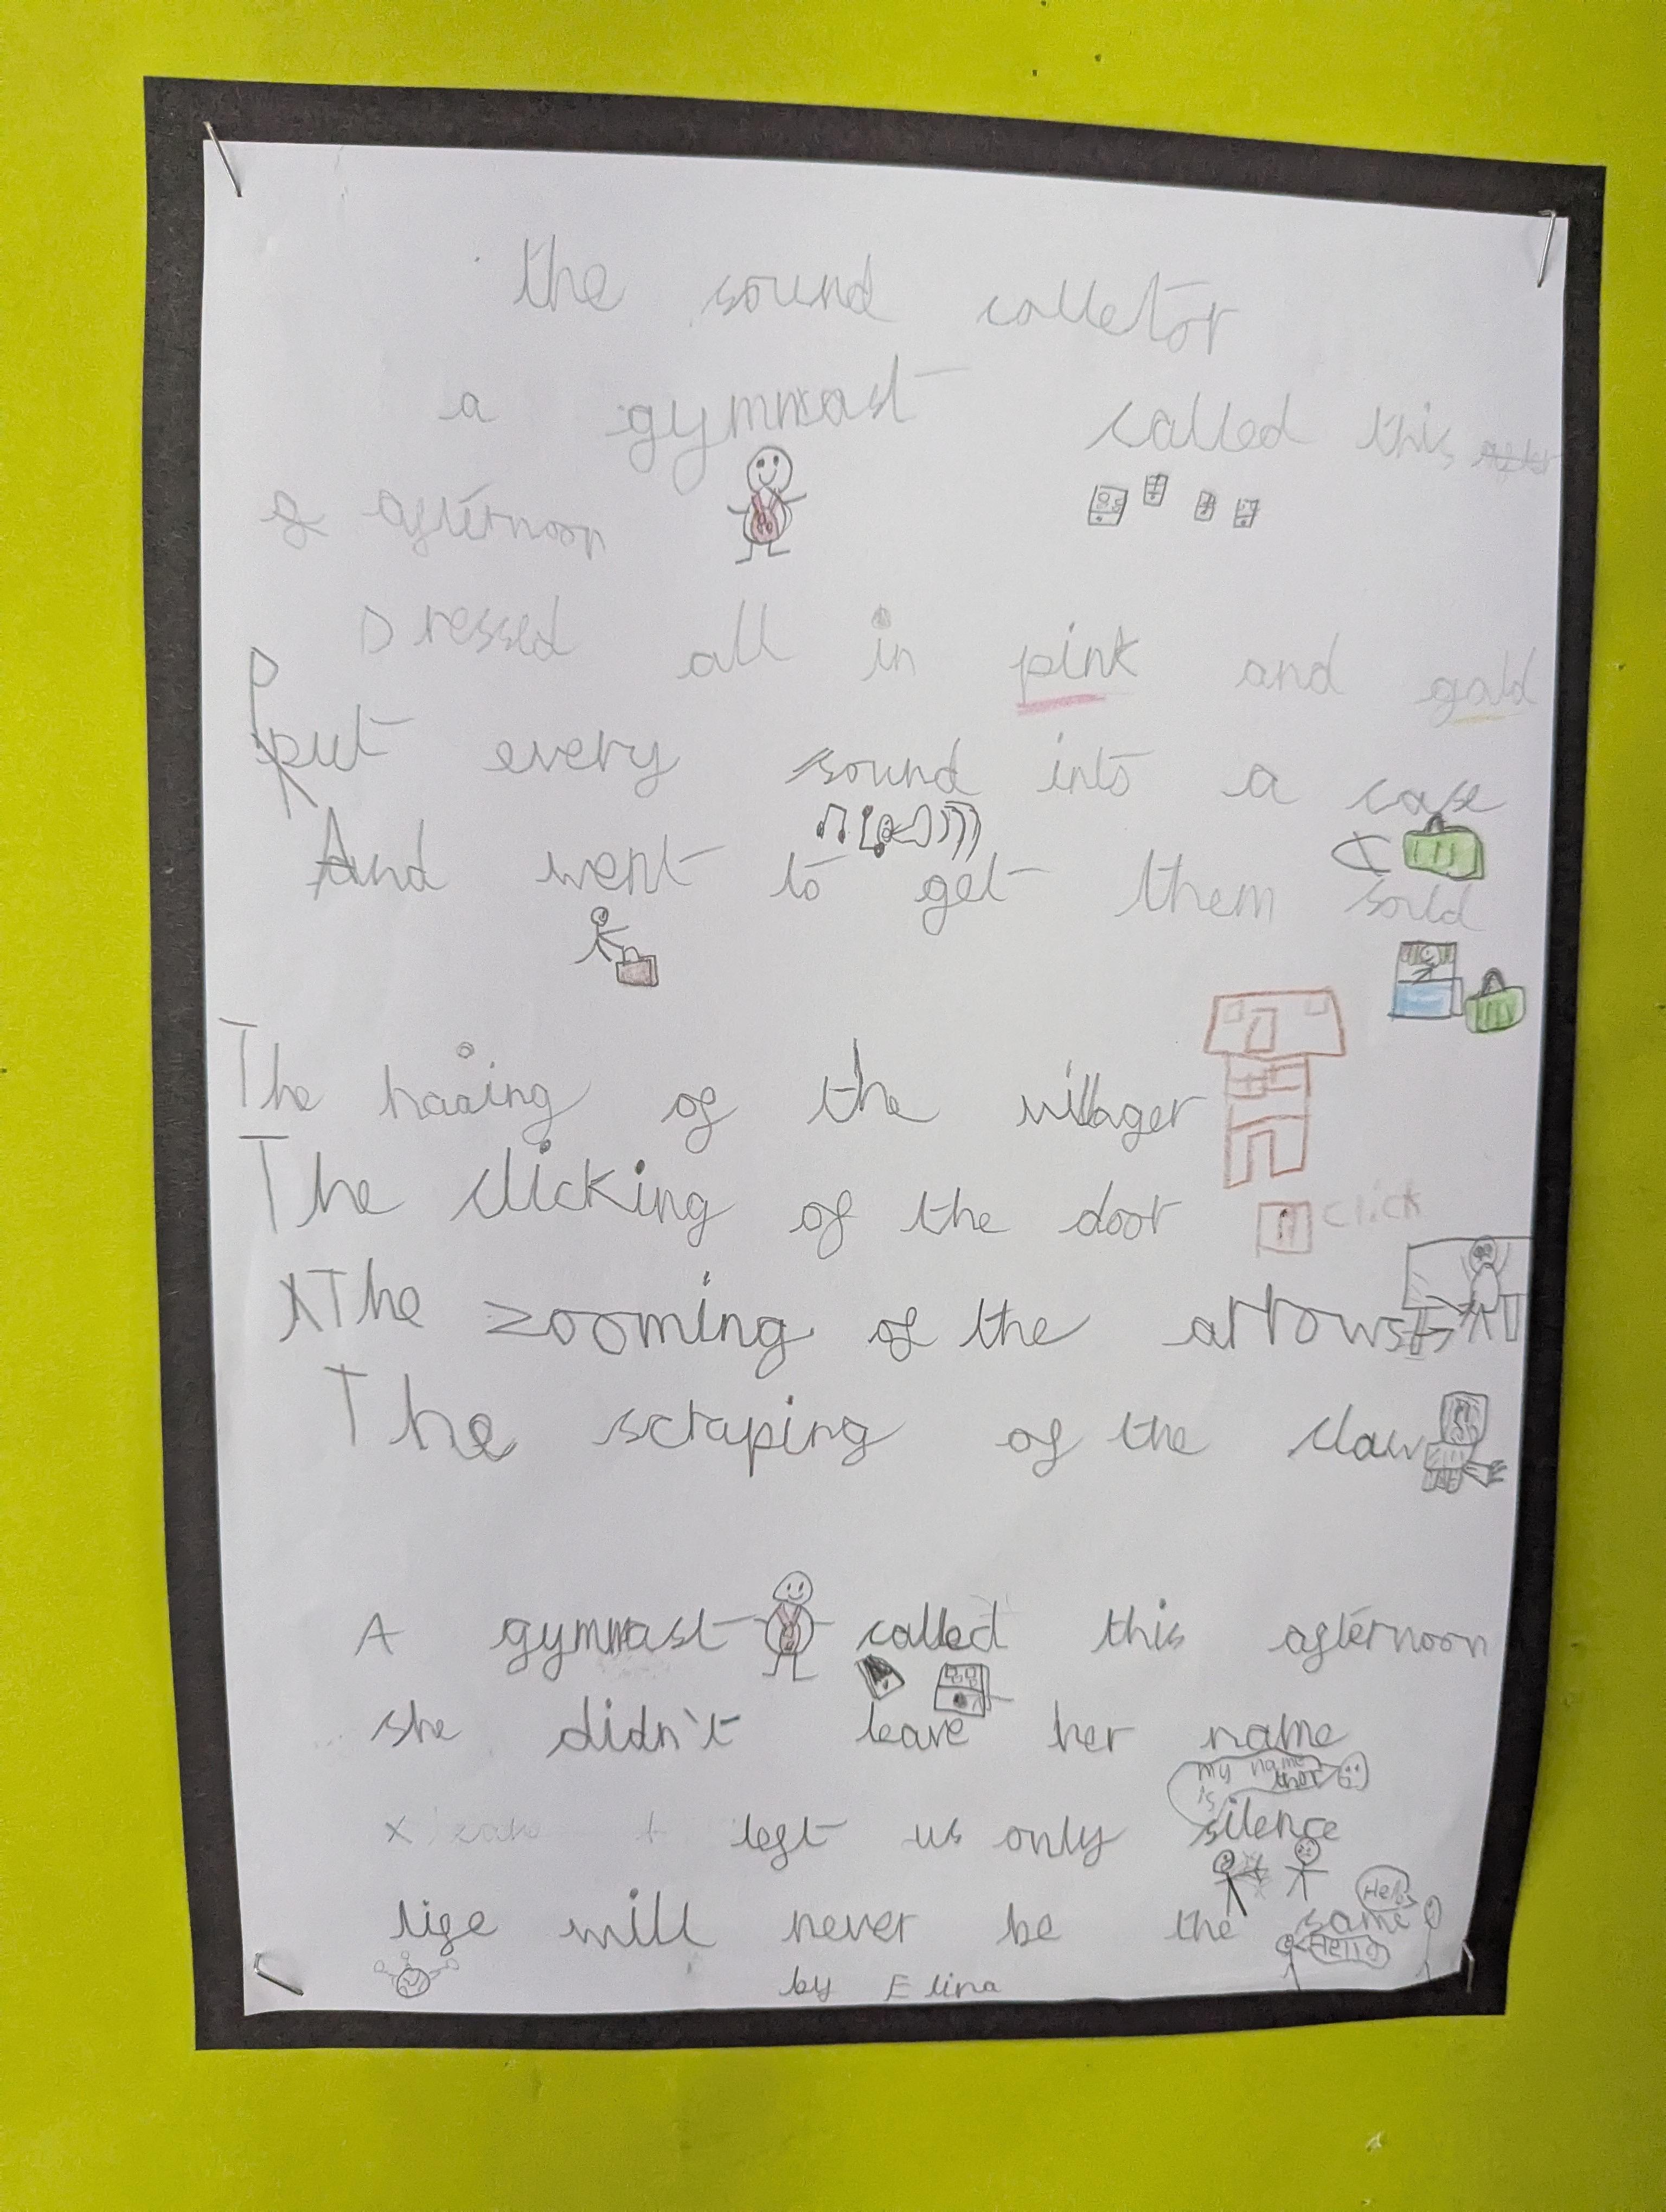 the sound colletor
a gymnast called this
afternoon
Dressed all in pink and gold
put every sound into a case
And went to get them sould
The haaing of the villager
The clicking of the door
click
The zooming of the arrows
The scraping of the claw
A gymnast called this afternoon
she didn't leave her name
my name is
left us only silence
life will never be the same
Hello
by Elina